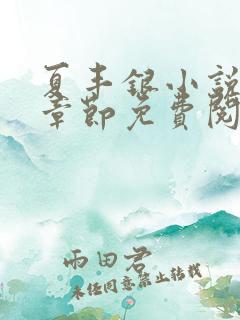 夏丰银小説
章節免費閱
雨田君
未经同意禁止转载